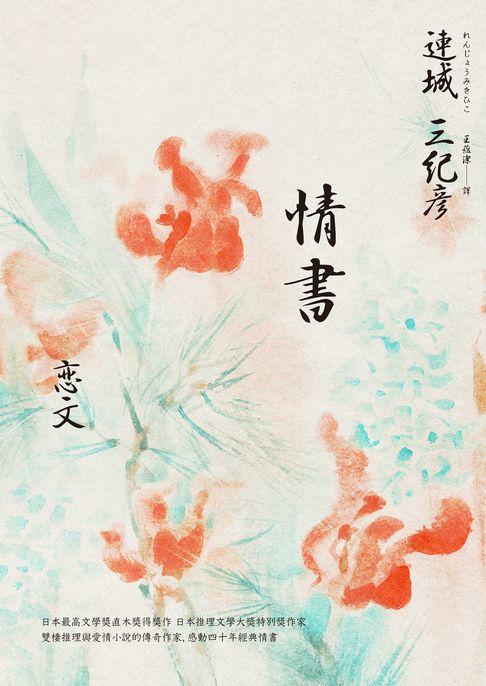 連城 三紀彦
れんじょうみきひこ
王蘊潔——譯
情書
恋文
日本最高文學獎直木獎得獎作 日本推理文學大獎特別獎作家
雙棲推理與愛情小說的傳奇作家，感動四十年經典情書